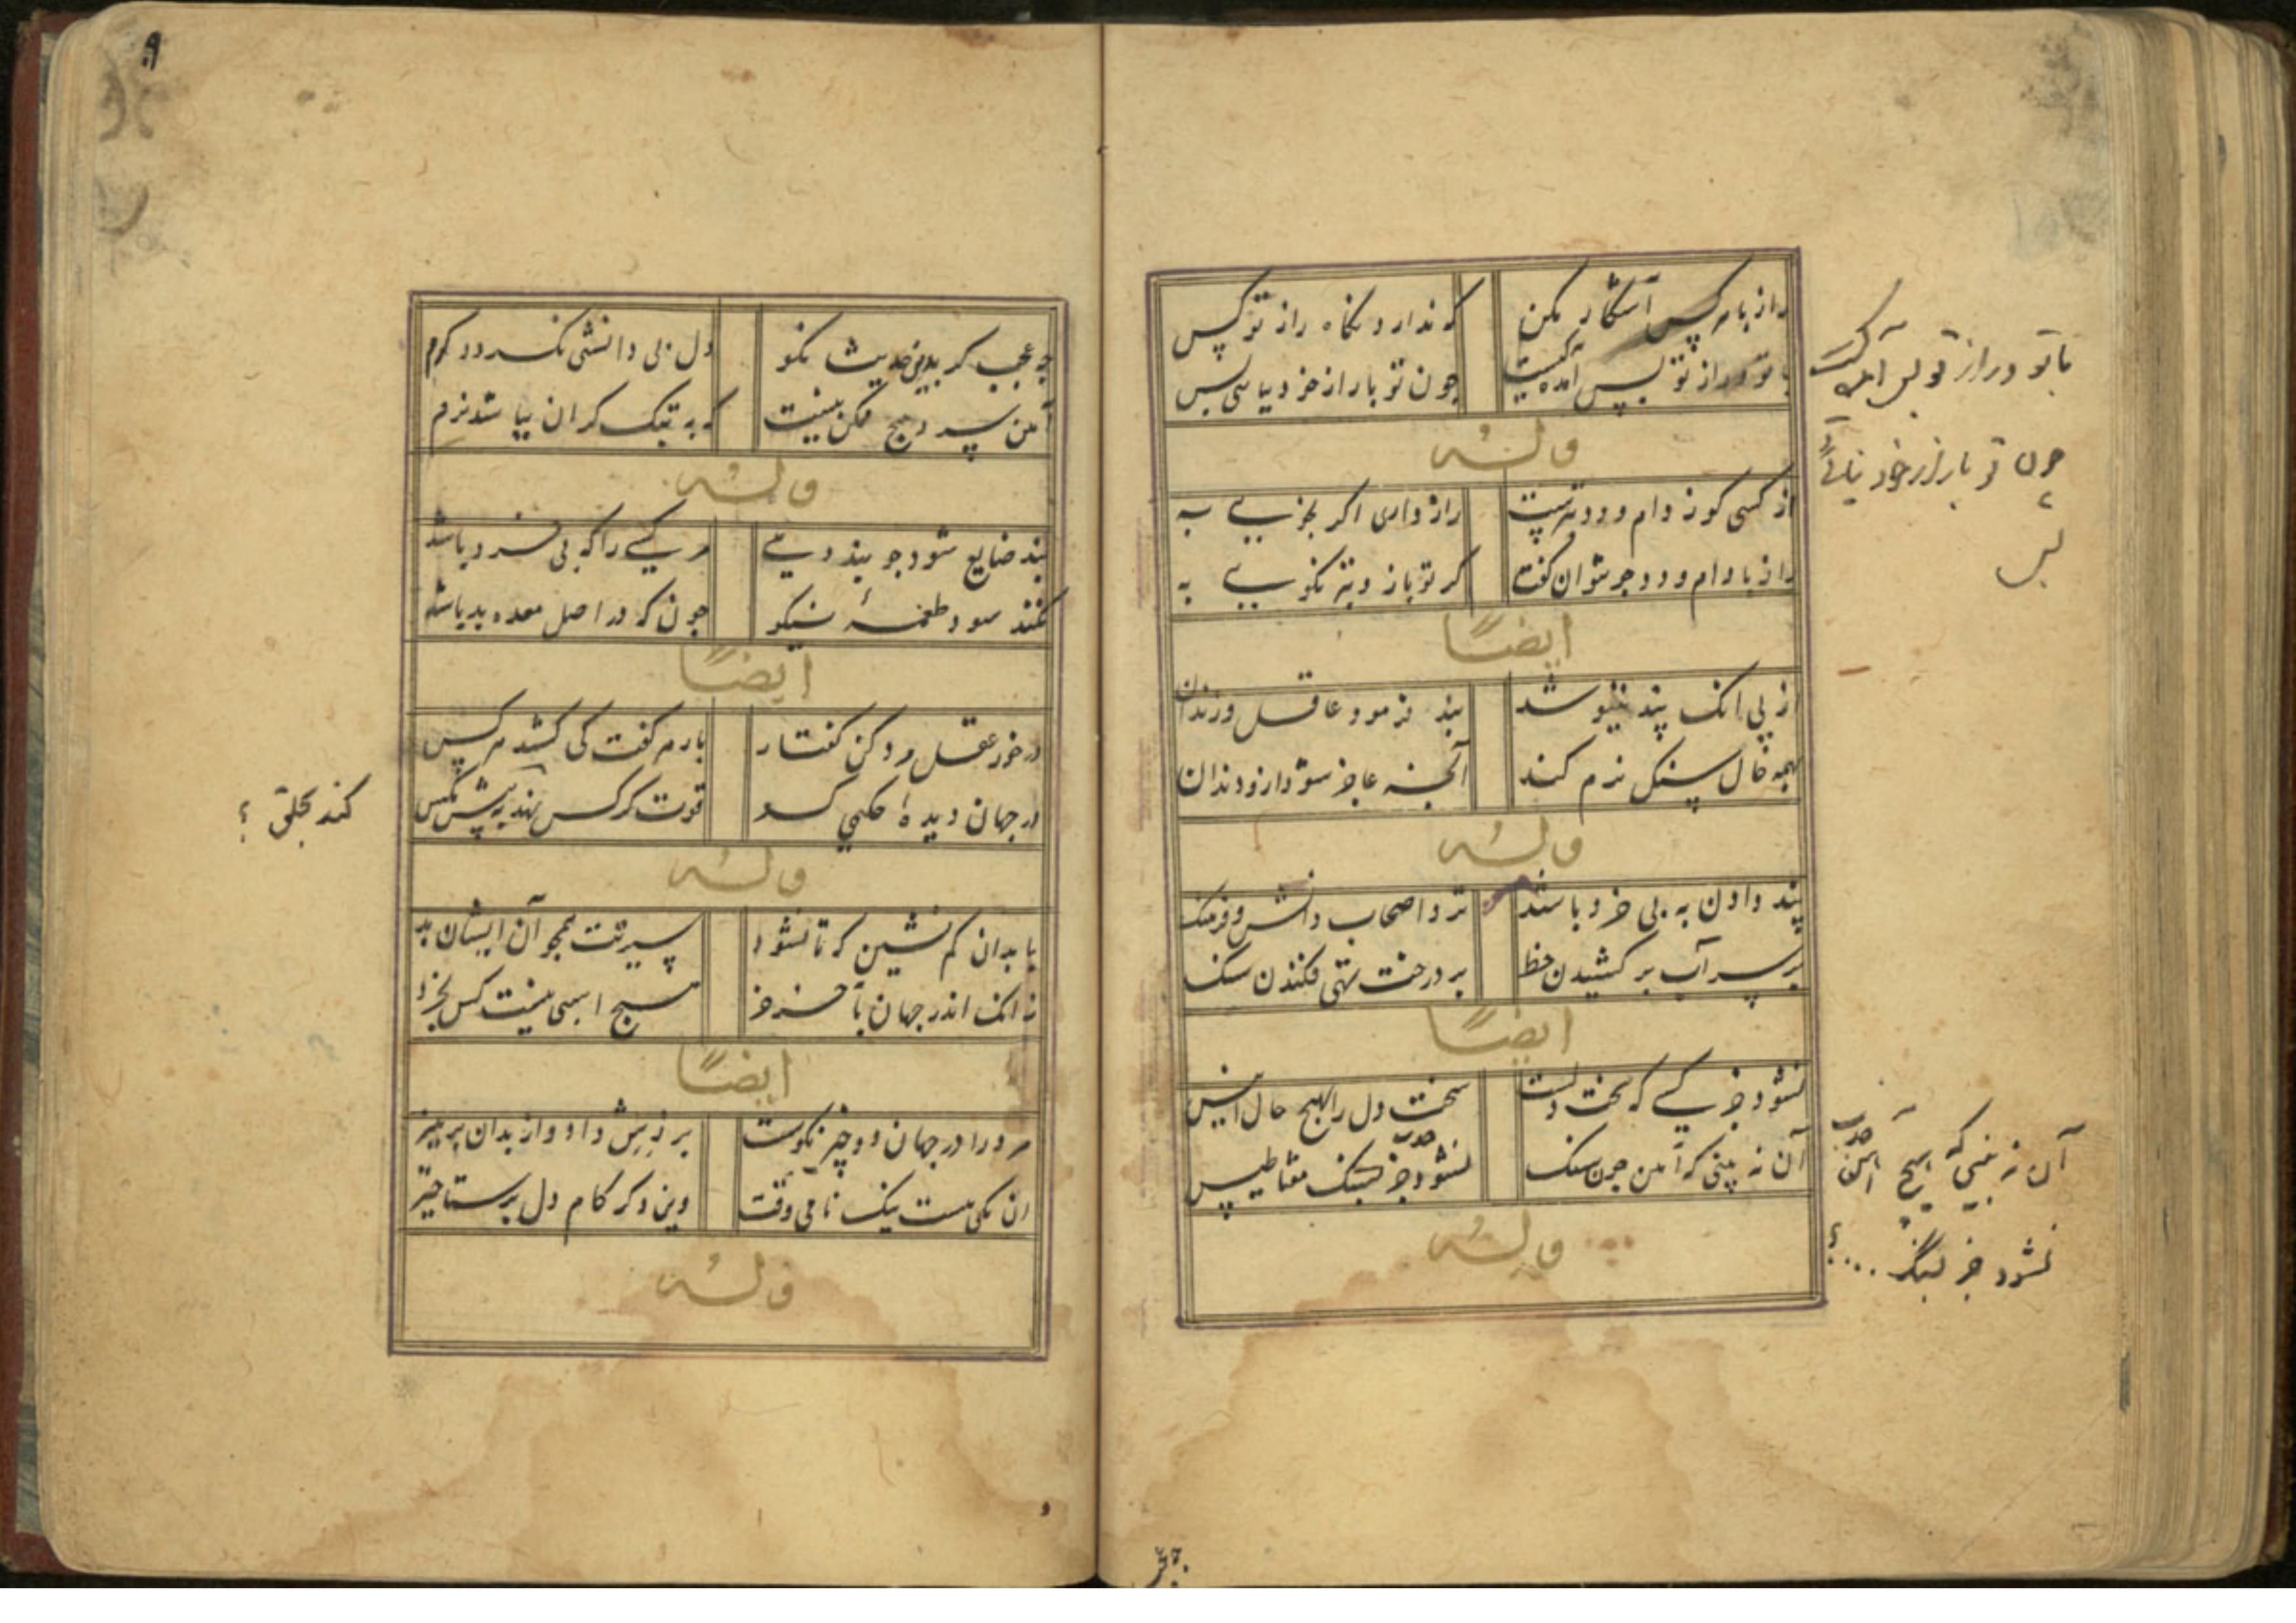 راز با هر کس آشکار مکن که ندارد نگاه راز تو کس
با تو در راز تو بس آمده نیست چون تو با راز خود نیایی بس
وله
از کسی کو ز دام و دد بترست راز داری اگر بجزیی به
راز با دام و دد چو نتوان گفت گر تو با زو بتر نگویی به
ایضًا
از پی انک پند ننیوشد پند فرمود عاقل و زندان
همه خال سنک نرم کند آنچه عاجز شود ازو دندان
وله
پند دادن به بی خرد باشد نزد اصحاب دانش و فرهنک
بر سر آب بر کشیدن خط بر درخت تهی فکندن سنک
ایضًا
نشود جز کسی که سخت دلست سخت دل را بهیچ حال انیس
آن نه بینی که آهن چون سنک نشود جذب جز بسنک مغناطیس
وله
با تو در راز تو بس آمده
چون تو با راز خود نیایی
بس
آن نه بینی که هیچ آهن
نشود جز بسنگ ....؟
۹
چه عجب کر بدین حدیث نکو دل بی دانشی نکردد کرم
آهن سرد هیچ ممکن نیست که به پتک کران بیاشد نرم
وله
پند ضایع شود چو پند دهی مر کسی را که بی خرد باشد
نکند سود طعمهٔ نیکو چون که در اصل معده بد باشد
ایضًا
در خور عقل مرد کن کفتار بار هر کفت کی کشد هر کس
در جهان دیدهٔ حکیمی کو قوت کرکس نهد به پیش مکس
کند بحلق ؟
وله
با بدان کم نشین که تا نشود سیرتت همچو آن ایشان بد
زانک اندر جهان با خر خر هیچ اسبی نیست کس بخرد
ایضًا
مرد را در جهان دو چیز نکوست برزش داد و از بدان پرهیز
ان یکی هست نیک نامی وقت وین دکر کام دل برستاخیز
وله